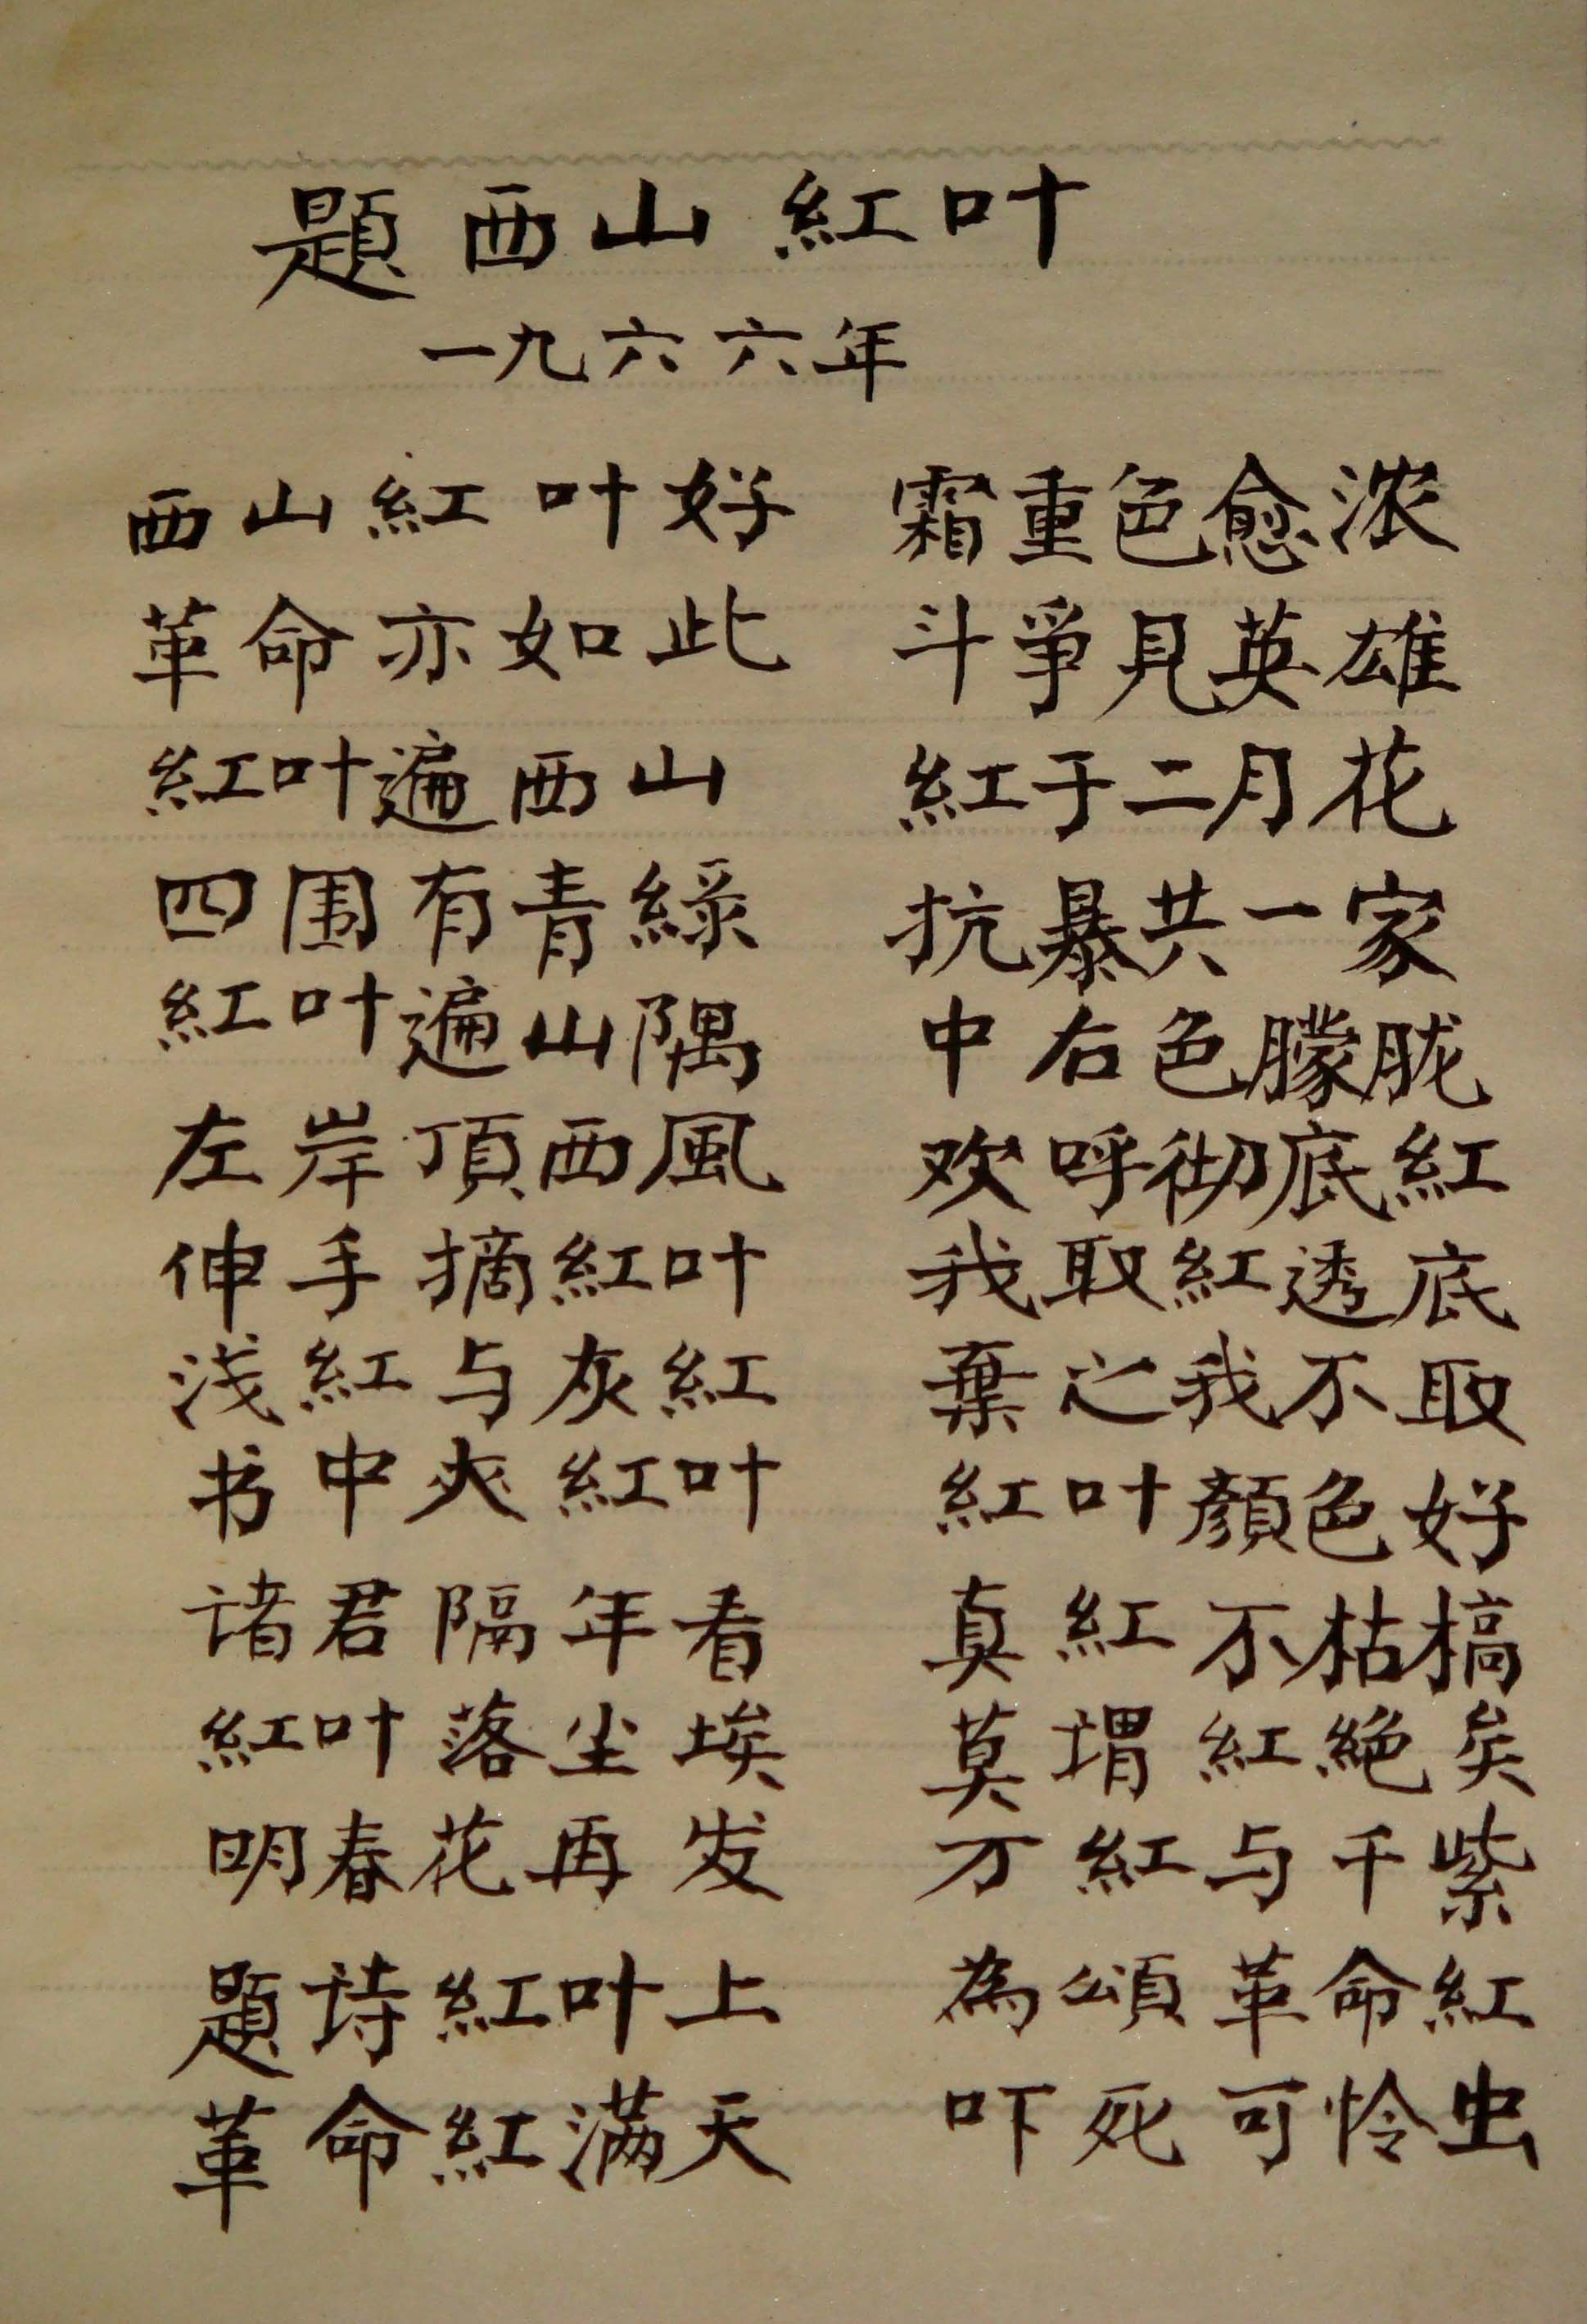 題西山紅叶
一九六六年
西山紅叶好 霜重色愈浓
革命亦如此 斗爭見英雄
紅叶遍西山 紅于二月花
四围有青綠 抗暴共一家
紅叶遍山隅 中右色朦胧
左岸頂西風 欢呼彻底紅
伸手摘紅叶 我取紅透底
浅紅与灰紅 棄之我不取
书中夾紅叶 紅叶顏色好
诸君隔年看 真紅不枯槁
紅叶落尘埃 莫谓紅絕矣
明春花再发 万紅与千紫
題诗紅叶上 為頌革命紅
革命紅满天 吓死可怜虫